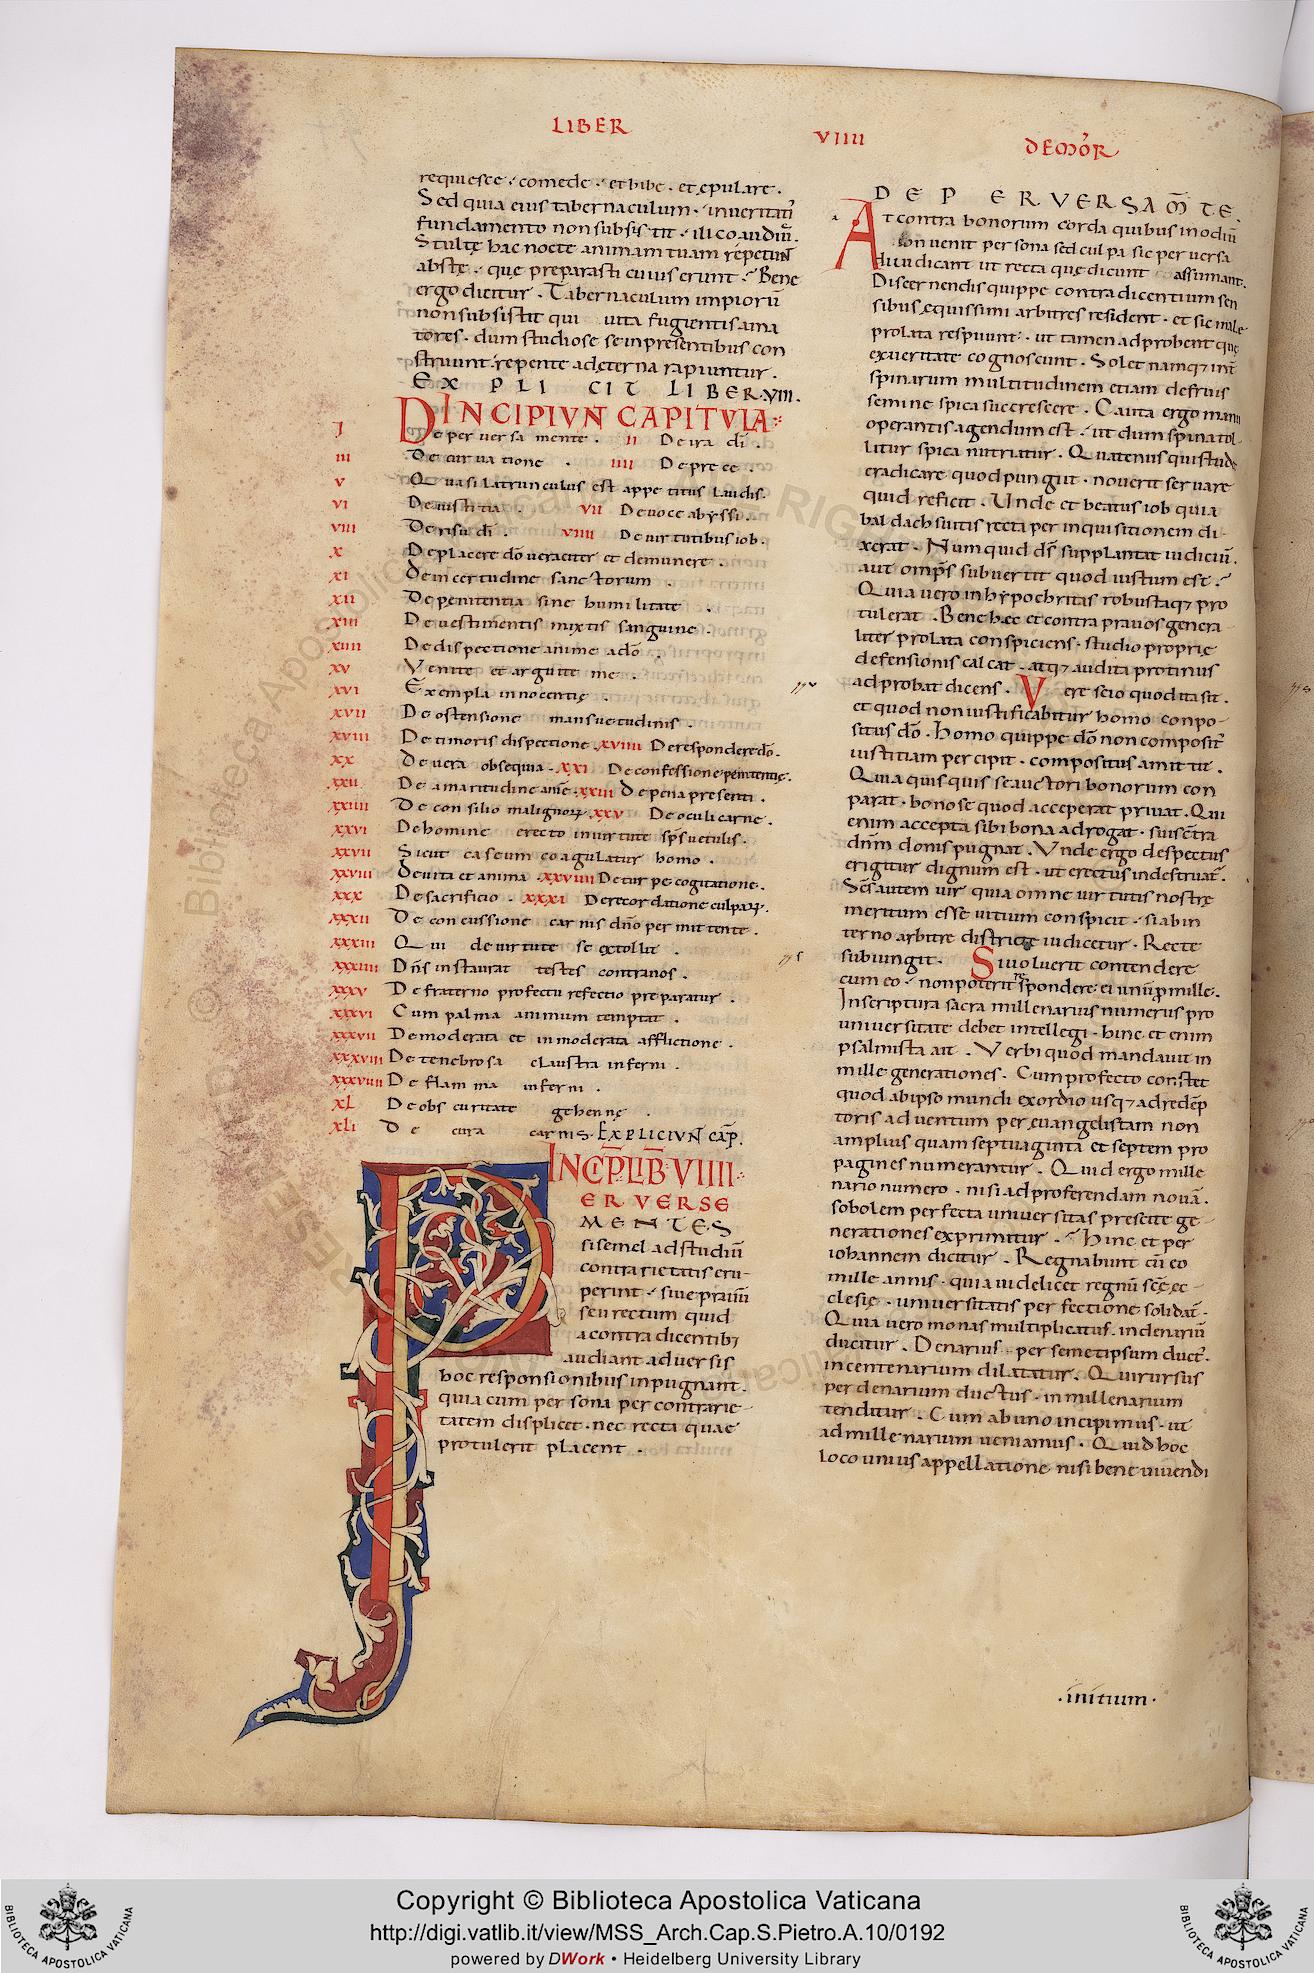 LIBER VIIII DEMOR̉
requiesce ⸵ comede ⸵ et bibe . et epulare .
Sed quia eius tabernaculum ⸵ in ueritatis
fundamento non subsistit ⸵ illico audiū .
Stulte hac nocte animam tuam repetunt
abs te ⸵ que preparasti cuius erunt ⸵ Bene
ergo dicitur . Tabernaculum impiorū
non subsistit qui uita fugientis ama
tores . dum studiose se in presentibus con
struunt ⸵ repente ad eterna rapiuntur .
EXPLICIT LIBER . VIII .
INCIPIVN CAPITVLA
I De peruersa mente . II De ira di .
III De curuatione . IIII De prece .
V Quasi latrunculus est appetitus laudis .
VI De iustitia . VII De uoce abyssi .
VIII De risu di . VIIII De uirtutibus iob .
X De placere dō ueraciter et de munere .
XI De incertudine sanctorum .
XII De penitentia sine humilitate .
XIII De uestimentis mixtis sanguine .
XIIII De dispectione anime a dō .
XV Venite et arguite me .
XVI Exempla innocentię .
XVII De ostensione mansuetudinis .
XVIII De timoris dispectione . XVIIII De respondere dō .
XX De uera obsequia . XXI De confessione penitentię .
XXII De amaritudine anīe . XXIII De pena presenti .
XXIIII De consilio malignoꝝ . XXV De oculi carne .
XXVI De homine erecto in uirtute sps uetulis .
XXVII Sicut caseum coagulatur homo .
XXVIII De uita et anima . XXVIIII De turpe cogitatione .
XXX De sacrificio . XXXI De recordatione culpaꝝ .
XXXII De concussione carnis dño permittente .
XXXIII Qui de uirtute se extollit .
XXXIIII Dñs instaurat testes contra nos .
XXXV De fraterno profectu refectio preparatur .
XXXVI Cum palma animum temptat .
XXXVII De moderata et inmoderata afflictione .
XXXVIII De tenebrosa claustra inferni .
XXXVIIII De flamma inferni .
XL De obscuritate gehennę .
XLI De cura carnis . EXPLICIVN̄ CAP̄ .
INCP̄ LIB̄ VIIII
PERVERSE
MENTES
si semel ad studiū
contrarietatis eru-
perint ⸵ siue prauū
seu rectum quid
a contradicentibꝫ
audiant aduersis
hoc responsionibus inpugnant .
quia cum persona per contrarie-
tatem displicet . nec recta quae
protulerit placent .
DE PERVERSA M̄TE .
At contra bonorum corda quibus in odiū
non uenit persona sed culpa sic peruersa
diiudicant ut recta quę dicunt assumant .
Discernendis quippe contradicentium sen
sibus equissimi arbitres resident . et sic male
prolata respuunt . ut tamen adprobent quę
ex ueritate cognoscunt . Solet namqꝫ inī
spinarum multitudinem etiam de fruis
semine spica succrescere . Cauta ergo manu
operantis agendum est ⸵ ut dum spina tol-
litur spica nutriatur . Quatenus qui studę
eradicare quod pungit . nouerit seruare
quid reficit . Unde et beatus iob quia
baldach suitis recta per inquisitionem di-
xerat . Numquid dš supplantat iudiciū .
aut omps subuertit quod iustum est ⸵
Quia uero in hypochritas robustaqꝫ pro
tulerat . Bene hec et contra prauos genera-
liter prolata conspiciens . studio proprię
defensionis calcat . atqꝫ audita protinus
adprobat dicens . Vere scio quod ita sit .
et quod non iustificabitur homo conpo-
situs dō . homo quippe dō non compositꝰ
iustitiam percipit . compositus amittit .
Quia quisquis se auctori bonorum con
parat . bono se quod acceperat priuat . Qui
enim accepta sibi bona adrogat . suis cōtra
dn̄m donis pugnat . Vnde ergo despectus
erigitur dignum est . ut erectus indestruat .
Scs autem uir quia omne uirtutis nostrę
meritum esse uitium conspicit . si ab in
terno arbitre districte iudicetur . Recte
subiungit . Si uoluerit contendere
cum eo ⸵ non poterit respondere ei unū p mille .
In scriptura sacra millenarius numerus pro
uniuersitate debet intellegi . hinc et enim
psalmista ait . Verbi quod mandauit in
mille generationes . Cum profecto constet
quod ab ipso mundi exordio usqꝫ ad redēp
toris aduentum per euangelistam non
amplius quam septuaginta et septem pro
pagines numerantur . Quid ergo mille
nario numero . nisi ad proferendam nouā .
sobolem perfecta uniuersitas prescite ge-
nerationes exprimitur . Hinc et per
iohannem dicitur . Regnabunt cū eo
mille annis . quia uidelicet regnū scę ec-
clesię . uniuersitatis perfectione solidat̄ .
Quia uero monas multiplicatus . in denariū
ducitur . Denarius . per semetipsum duct̄ .
in centenarium dilatatur . Qui rursus
per denarium ductus . in millenarium
tenditur . Cum ab uno incipimus . ut
ad millenarium ueniamus . Quid hoc
loco unius appellatione nisi bene uiuendi
. initium .
Copyright © Biblioteca Apostolica Vaticana
http://digi.vatlib.it/view/MSS_Arch.Cap.S.Pietro.A.10/0192
powered by DWork • Heidelberg University Library
BIBLIOTECA APOSTOLICA VATICANA
BIBLIOTECA APOSTOLICA VATICANA